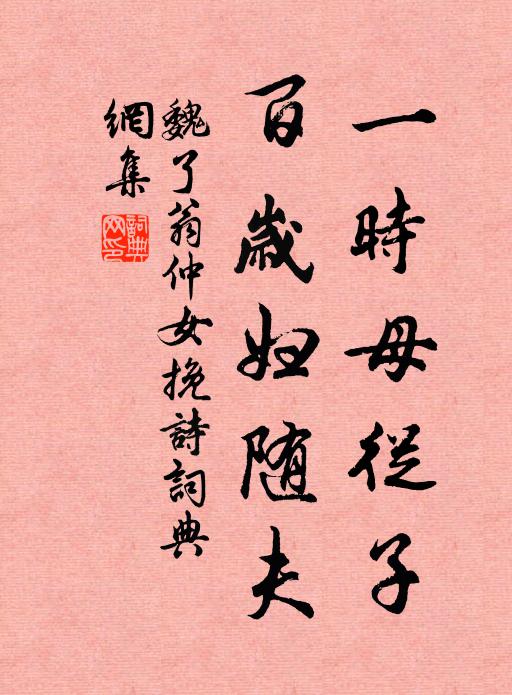 一時母從子
百歲妇随夫
魏了翁仲女挽詩詞典
網集
詞典
网印